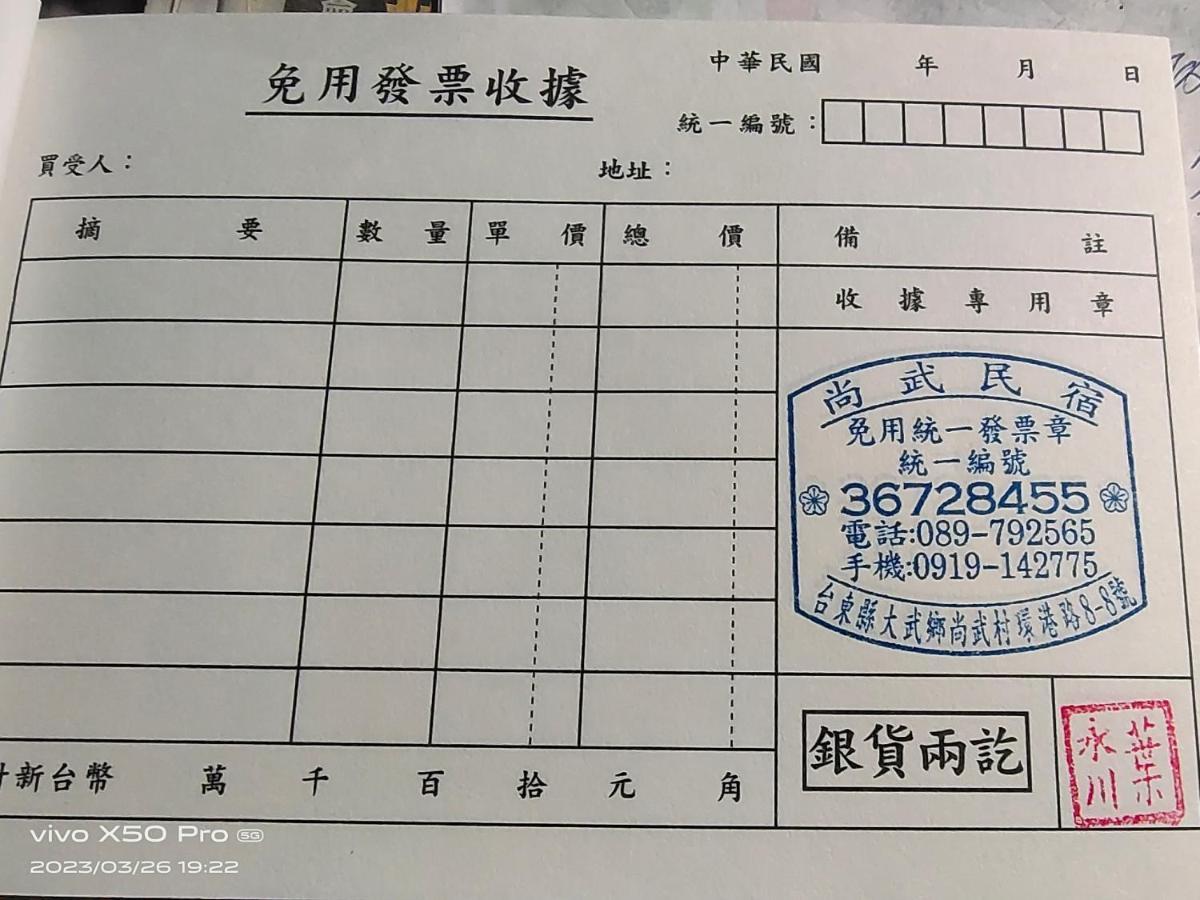 免用發票收據
中華民國 年 月 日
統一編號：
買受人：
地址：
摘要 數量 單價 總價 備註
收據專用章
尚武民宿
免用統一發票章
統一編號
36728455
電話:089-792565
手機:0919-142775
台東縣大武鄉尚武村環港路8-8號
計新台幣 萬 千 百 拾 元 角
銀貨兩訖
葉
永川
vivo X50 Pro 5G
2023/03/26 19:22